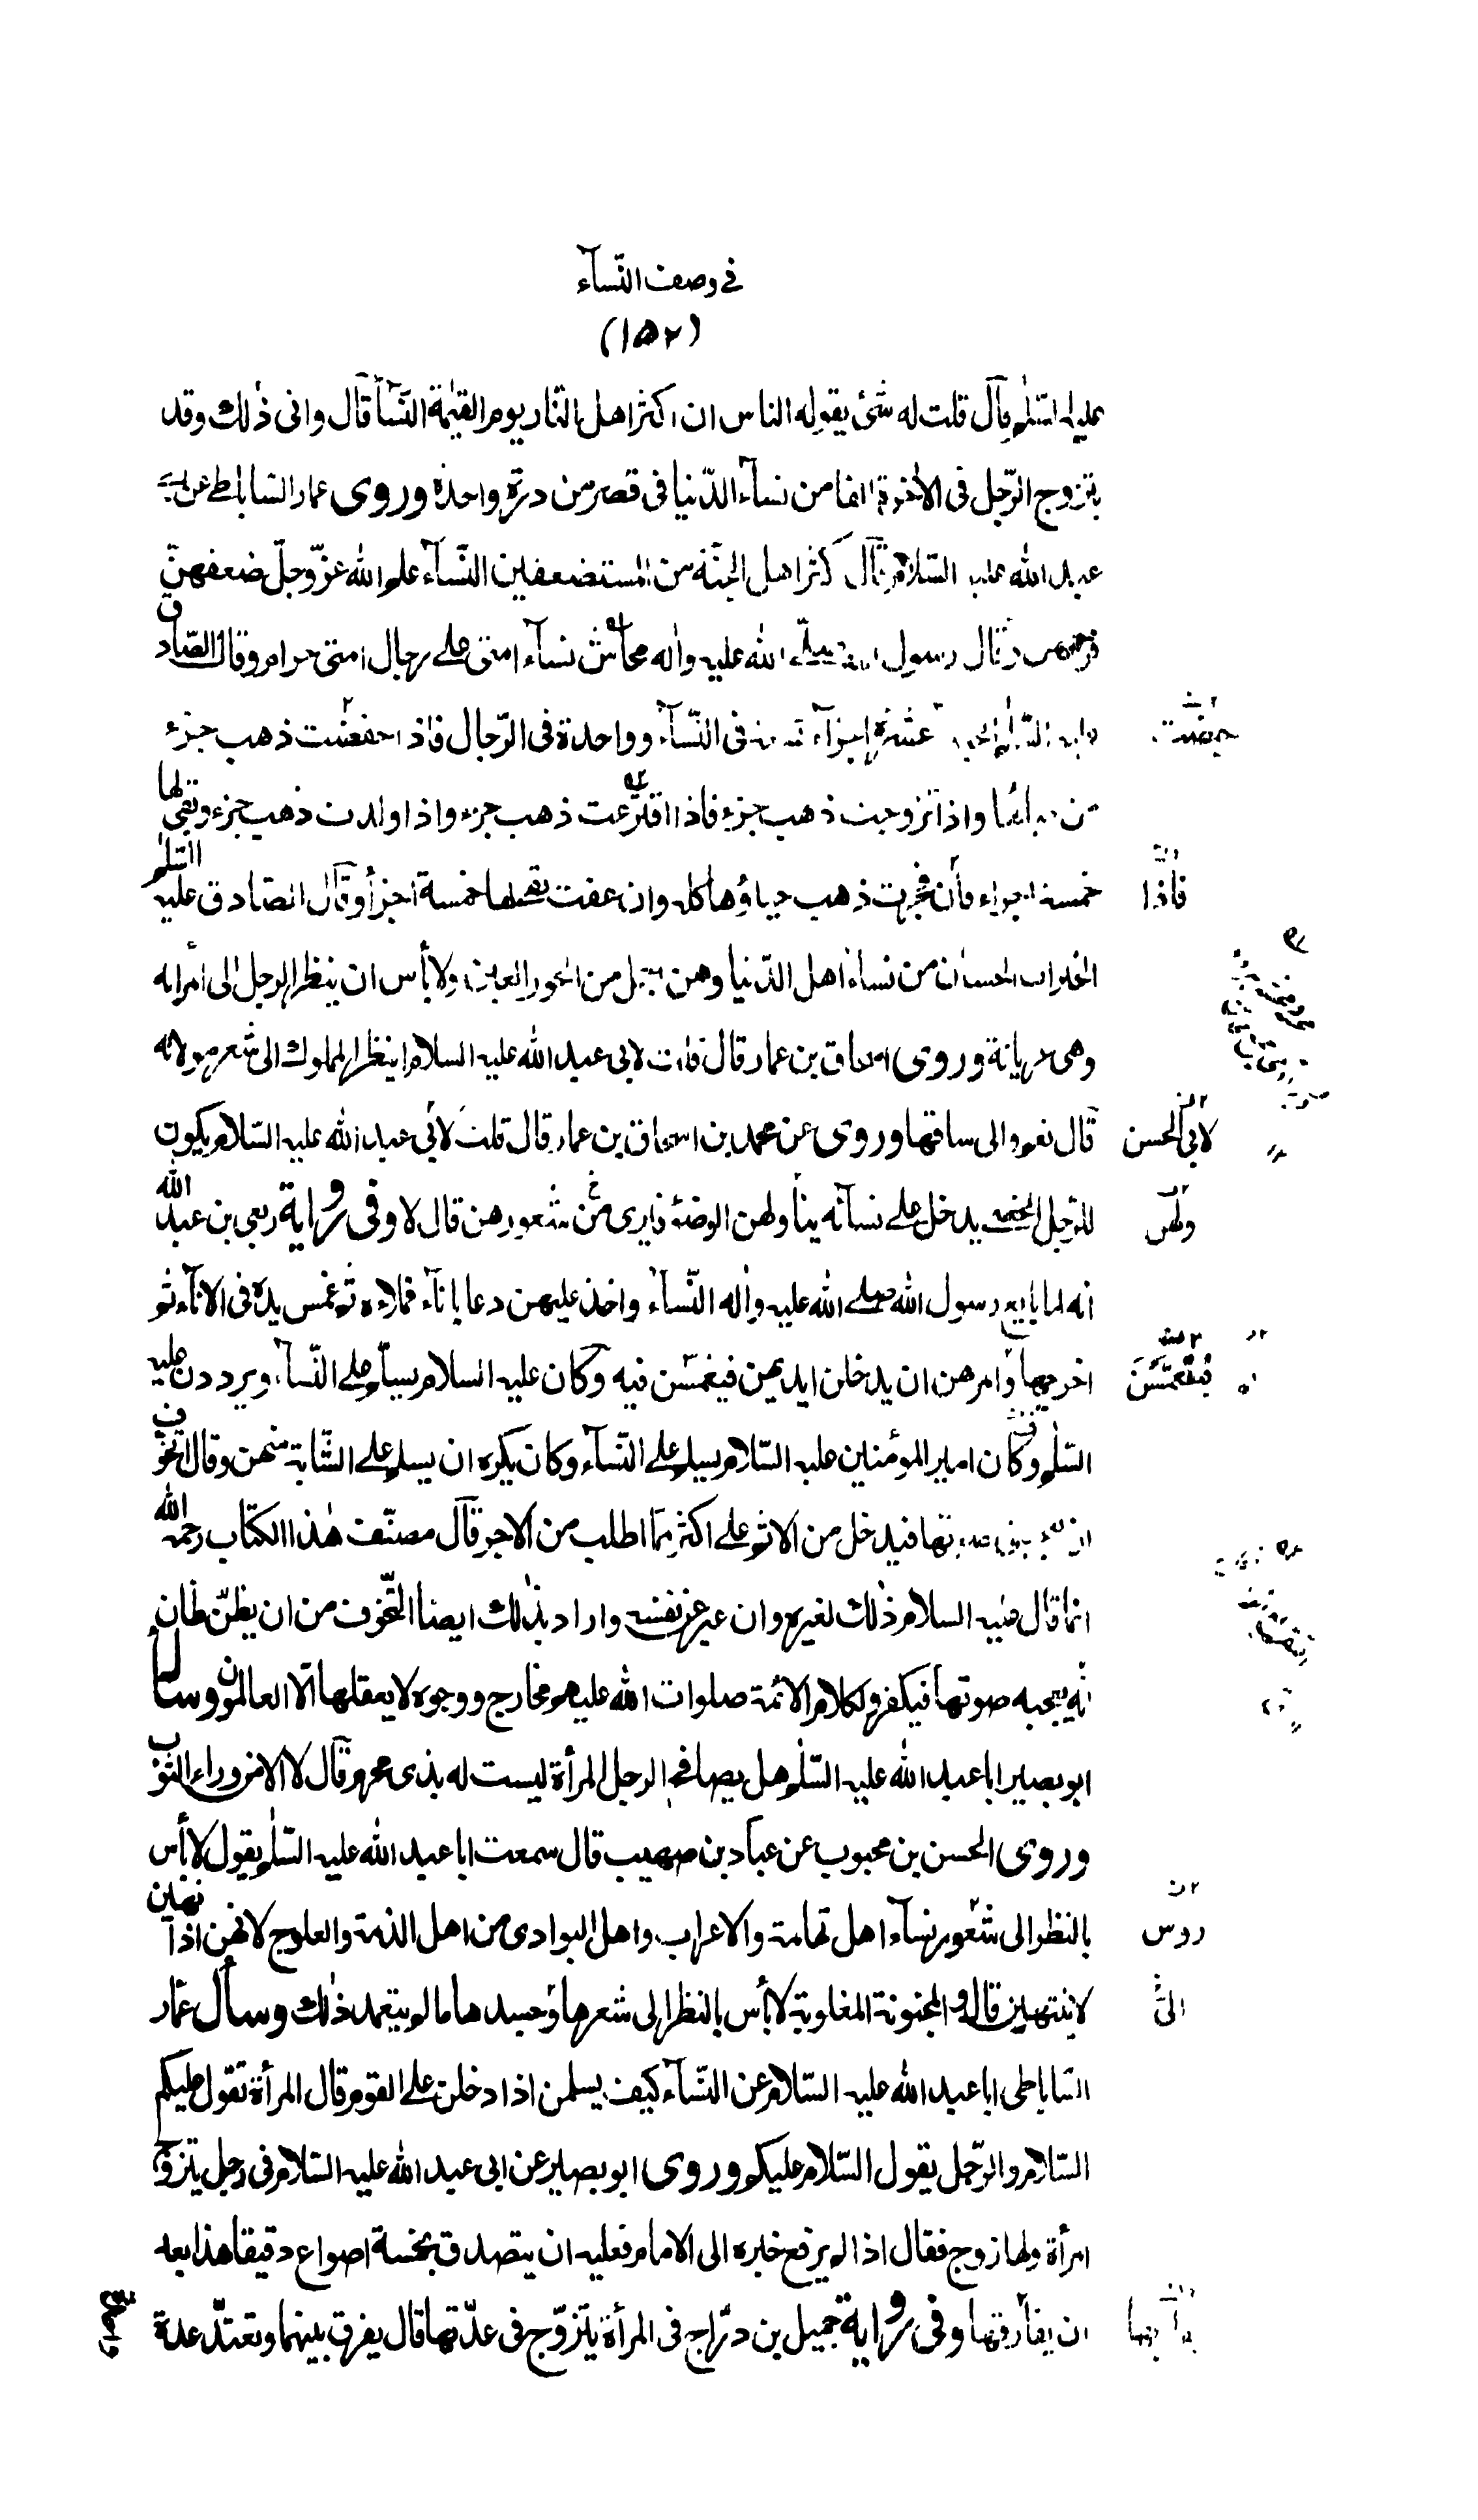 في وصف النّسآء
(١٥٢)
عليه السّلم قال قلت له شئ يقوله الناس ان اكثر اهل النّار يوم القيٰمة النّسآء قال وانى ذٰلك وقد
يتزوج الرّجل فى الاخرة الفا من نسآء الدّنيا فى قصر من درّة واحدة وروى عمار السّاباطى عن ابى
عبد الله عليه السّلام قال اكثر اهل الجنّة من المستضعفين النّسآء علم الله عزّ وجلّ ضعفهنّ
فرحمهن وقال رسول الله صلى الله عليه واٰله محاشّ نسآء امتى على رجال امتى حرام وقال الصّادق
عليه السّلام الحيآء عشرة اجزآء تسعة فى النّسآء وواحدة فى الرّجال فاذا خفضت ذهب جزء
حيضت
من حيائها واذا تزوجت ذهب جزء فاذا افترّعت ذهب جزء واذا ولدت ذهب جزء وبقى لها
خمسة اجزاء فأن فجرت ذهب حياؤها كله وان عفت بقى لها خمسة اجزأ وقال الصّادق عليه السّلم
فاذا
الخيرات الحسان من نساء اهل الدّنيا وهن اجمل من الحور العين ولا بأس ان ينظر الرجل الى امرأته
وهى عريانة وروى اسحاق بن عمار قال قلت لابى عبد الله عليه السلام اينظر المملوك الى شعر مولاته
قال نعم والى ساقها وروى عن محمد بن اسحاق بن عمار قال قلت لابى عبد الله عليه السّلام يكون
لابى الحسن
للرّجل الخصى يدخل على نسآئه يناولهن الوضوء فيرى من شعورهن قال لا وفى رواية ربعى بن عبد الله
ولهن
انه لما بايع رسول الله صلى الله عليه واٰله النّسآء واخذ عليهن دعا باناء فملاءه ثم غمس يده فى الاناء ثم
اخرجها وامرهن ان يدخلن ايديهن فيغمسن فيه وكان عليه السلام يسلّم على النّسآء ويرددن عليه
فيغمسن
السّلم وكان امير المؤمنين عليه السّلام يسلم على النّسآء وكان يكره ان يسلم على الشّابة منهن وقال اتخوف
ان يعجبنى صوتها فيدخل من الاثم على اكثر مما اطلب من الاجر قال مصنّف هٰذا الكتاب رحمه الله
انما قال عليه السلام ذٰلك لغيره وان عبر عن نفسه واراد بذٰلك ايضا التّخوف من ان يظنّ ظان
انّه يعجبه صوتها فيكفر ولكلام الائمة صلوات الله عليهم مخارج ووجوه لا يعقلها الّا العالمون وسأل
ابو بصير ابا عبد الله عليه السّلم هل يصافح الرجل المرأة ليست له بذى محرم قال لا الا من وراء الثوب
وروى الحسن بن محبوب عن عباد بن صهيب قال سمعت ابا عبد الله عليه السّلم يقول لا بأس
بالنظر الى شعور نسآء اهل تهامة والاعراب واهل البوادى من اهل الذمة والعلوج لانهن اذا نهين
روس
لا ينتهين قال والمجنونة المغلوبة لا بأس بالنظر الى شعرها وجسدها ما لم يتعمد ذٰلك وسأل عمّار
الى
السّاباطى ابا عبد الله عليه السّلام عن النّسآء كيف يسلمن اذا دخلن على القوم قال المرأة تقول عليكم
السّلام والرّجل يقول السّلام عليكم وروى ابو بصير عن ابى عبد الله عليه السّلام فى رجل يتزوج
امرأة ولها زوج فقال اذا لم يرفع خبره الى الامام فعليه ان يتصدق بخمسة اصواع دقيقا هذا بعد
ان يفارقها وفى رواية جميل بن درّاج فى المرأة يتزوّج فى عدّتها قال يفرق بينهما وتعتدّ عدة